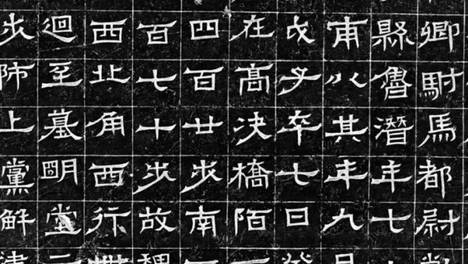 卿駙馬都尉
縣魯潛年七十
甫以其年九月
戊子卒七日癸
在高决橋陌
四百廿步南
百七十步故魏
西北角西行卌
迴至墓明堂二
步師上黨解建